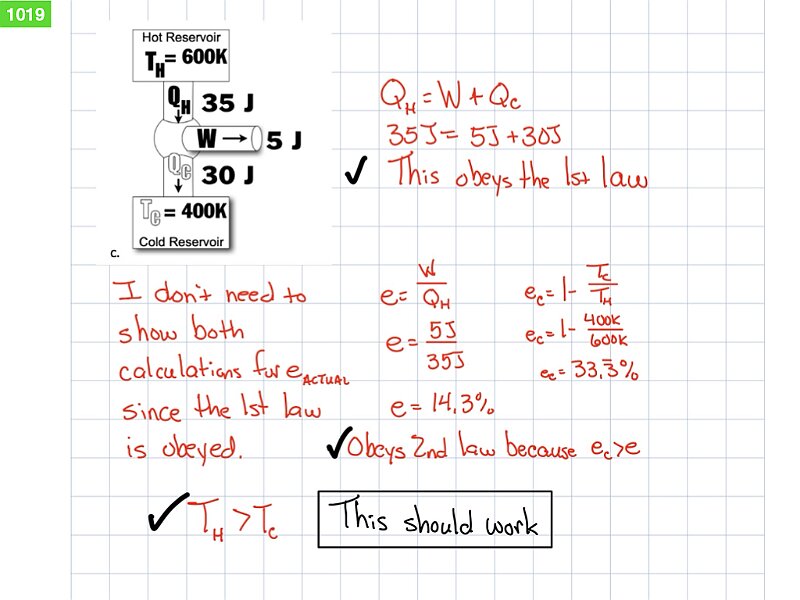 1019
Hot Reservoir
T_H = 600K
Q_H 35 J
W → 5 J
Q_C 30 J
T_C = 400K
Cold Reservoir
c.
Q_H = W + Q_C
35J = 5J + 30J
✓ This obeys the 1st law
I don't need to
show both
calculations for e_ACTUAL
since the 1st law
is obeyed.
e = W/Q_H
e = 5J/35J
e = 14.3%
e_c = 1 - T_C/T_H
e_c = 1 - 400K/600K
e_c = 33.3̅%
✓ Obeys 2nd law because e_c > e
✓ T_H > T_C
This should work